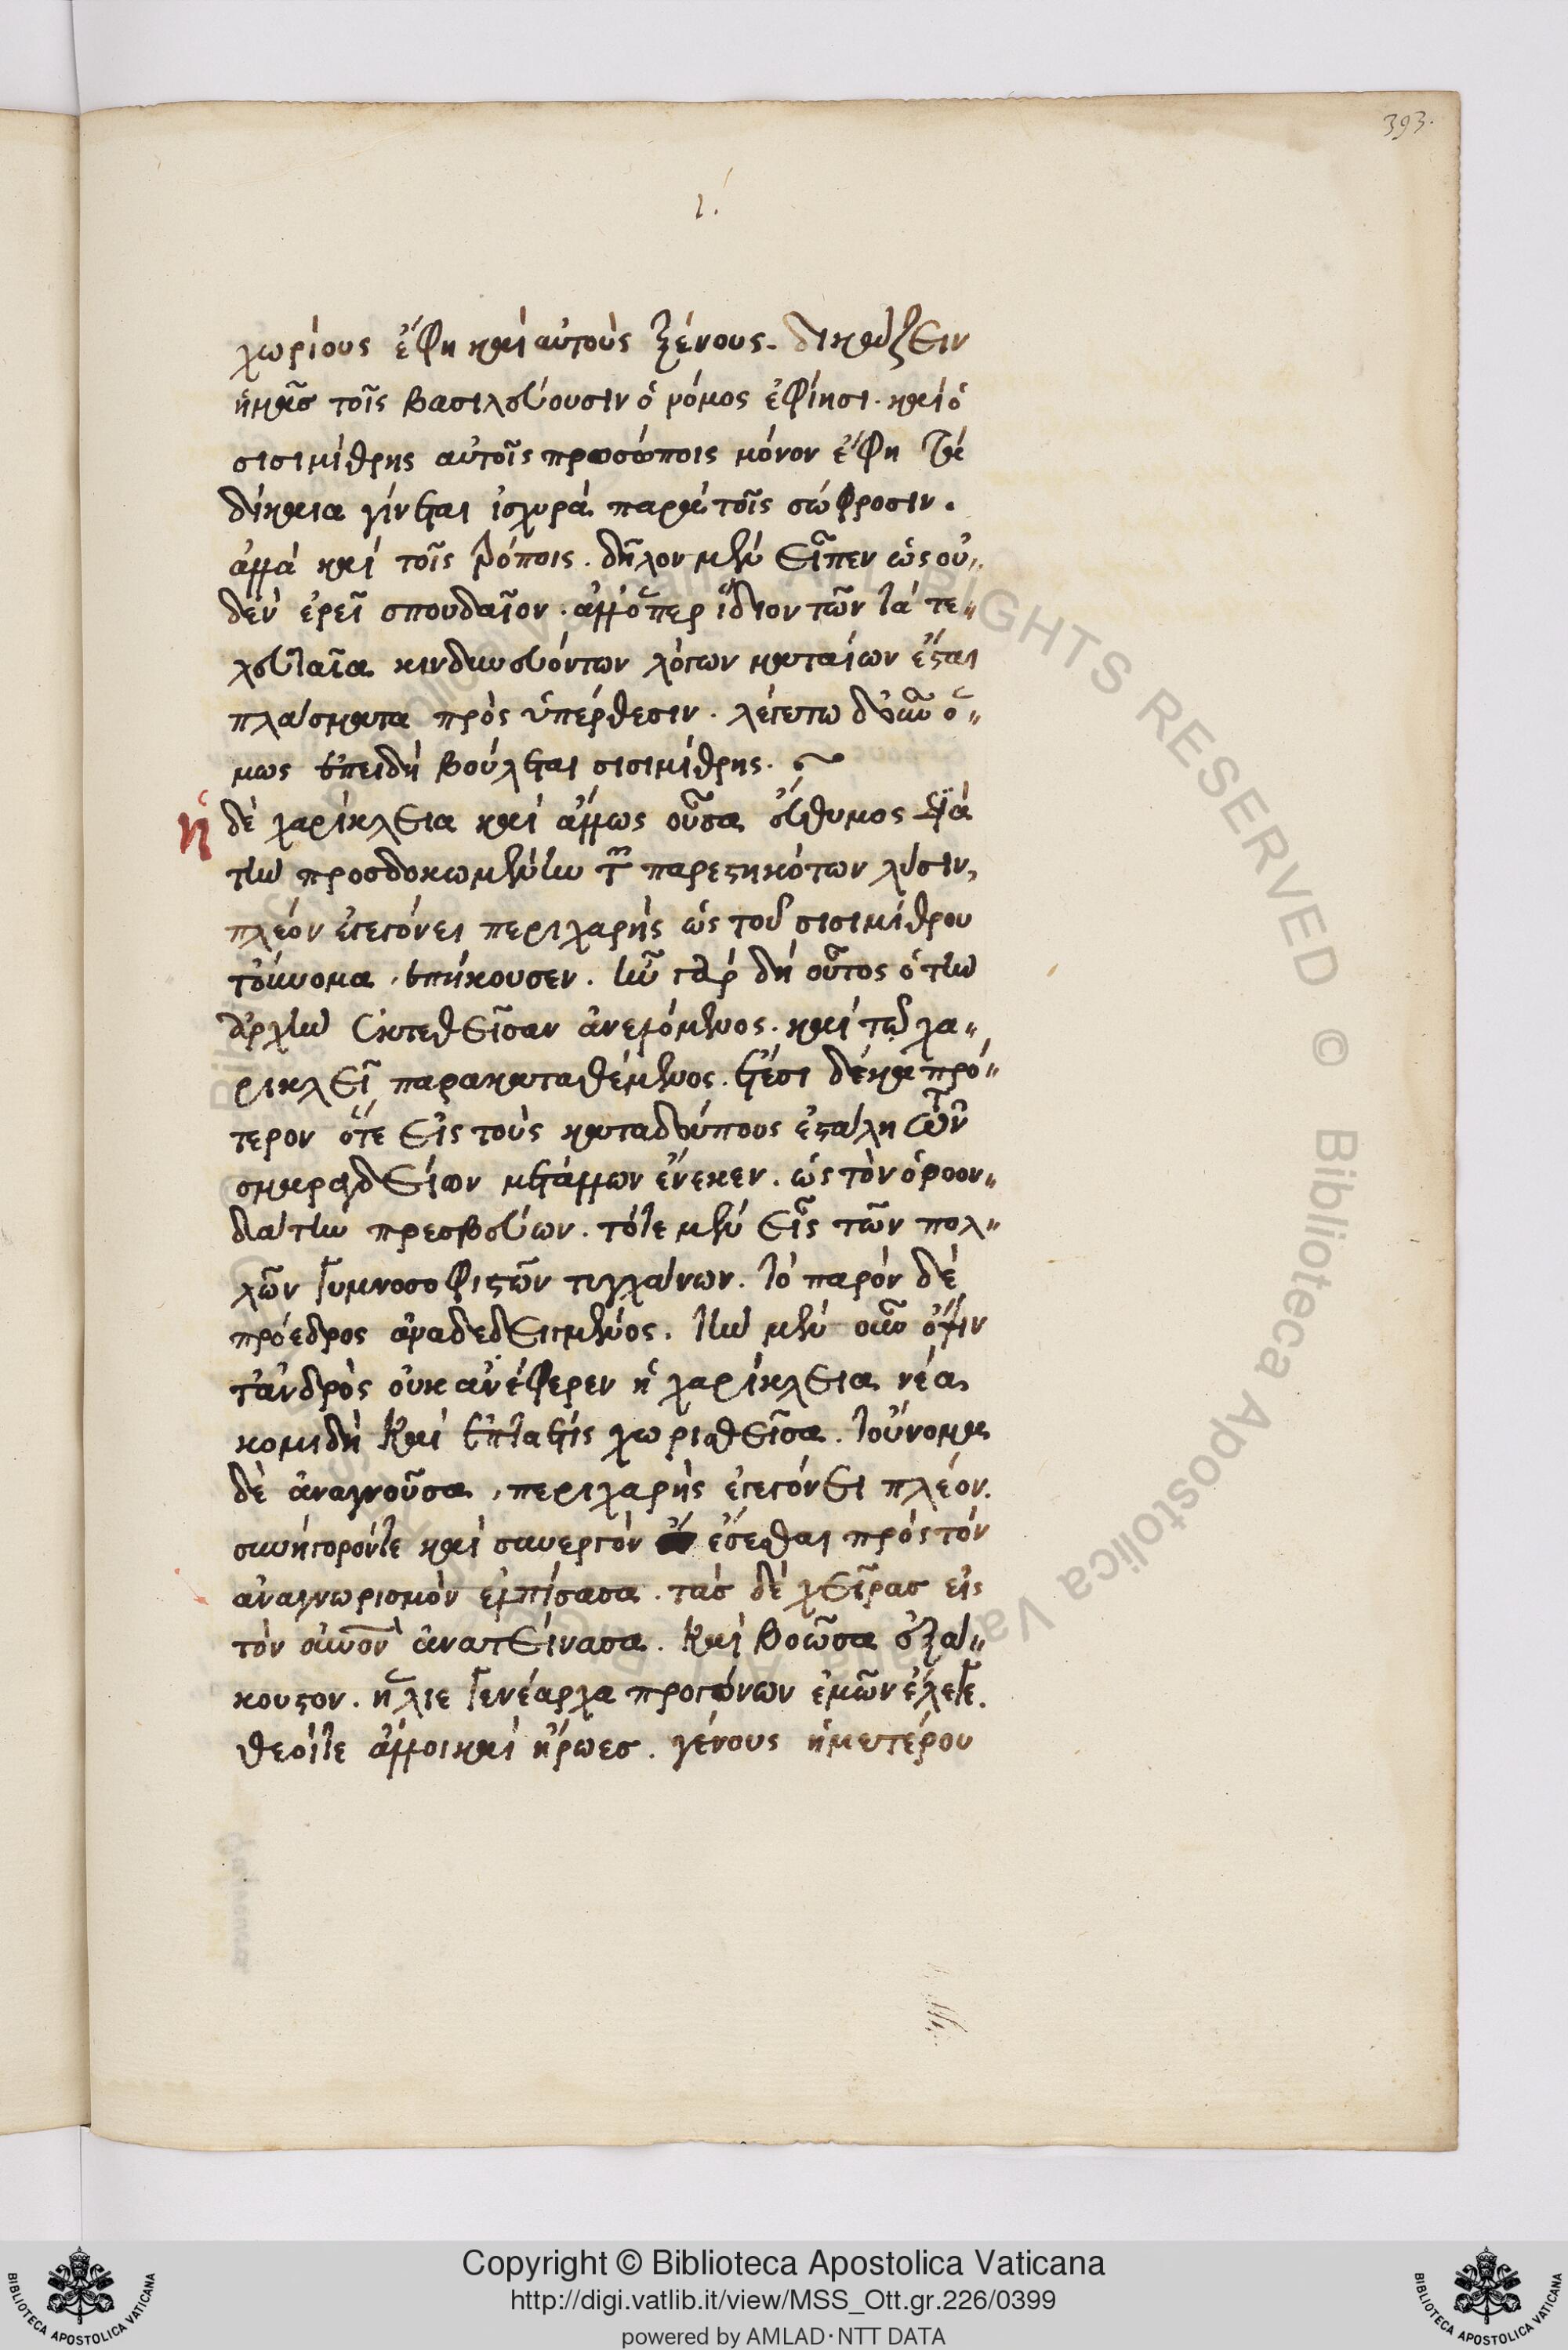 393.
ι.
χωρίους ἔφη καὶ αὐτοὺς ξένους. δικάζειν
ἡμᾶσ τοῖς βασιλεύουσιν ὁ νόμος ἐφίησι. καὶ ὁ
σισιμίθρης αὐτοῖς προσώποις μόνον ἔφη τὰ
δίκαια γίνεται ἰσχυρὰ παρὰ τοῖς σώφροσιν.
ἀλλὰ καὶ τοῖς τρόποις. δῆλον μὲν εἶπεν ὡς οὐ„
δὲν ἐρεῖ σπουδαῖον. ἀλλ' ὅπερ ἴδιον τῶν τὰ τε„
λευταῖα κινδυνευόντων λόγων ματαίων ἔσται
πλάσματα πρὸς ὑπέρθεσιν. λεγέτω δ' οὖν ὅ„
μως ἐπειδὴ βούλεται σισιμίθρης.
ἡ δὲ χαρίκλεια καὶ ἄλλως οὖσα εὔθυμος διὰ
τὴν προσδοκωμένην τῶν παρεστηκότων λύσιν,
πλέον ἐγεγόνει περιχαρὴς ὡς τοῦ σισιμίθρου
τοὔνομα, ἐπήκουσεν. ἦν γὰρ δὴ οὗτος ὁ τὴν
ἀρχὴν ἐκτεθεῖσαν ἀνελόμενος. καὶ τῷ χα„
ρικλεῖ παρακαταθέμενος. ἔτεσι δέκα πρό„
τερον ὅτε εἰς τοὺς καταδούπους ἐστάλη τῶν
σμαραγδείων μετάλλων ἕνεκεν. ὡς τὸν ὀροον„
δάτην πρεσβεύων. τότε μὲν εἷς τῶν πολ„
λῶν γυμνοσοφιστῶν τυγχάνων. τὸ παρὸν δὲ
πρόεδρος ἀναδεδειγμένος. τὴν μὲν οὖν ὄψιν
τἀνδρὸς οὐκ ἀνέφερεν ἡ χαρίκλεια νέα
κομιδῇ καὶ ἑπταετὶς χωρισθεῖσα. τοὔνομα
δὲ ἀναγνοῦσα, περιχαρὴς ἐγεγόνει πλέον.
συνήγορόν τε καὶ συνεργὸν ἔσεσθαι πρὸς τὸν
ἀναγνωρισμὸν ἐλπίσασα. τὰσ δὲ χεῖρασ εἰς
τὸν οὐνὸν ἀνατείνασα. καὶ βοῶσα ἐξά„
κουστον. ἥλιε γενέαρχα προγόνων ἐμῶν ἔλεγε.
θεοί τε ἄλλοι καὶ ἥρωεσ. γένους ἡμετέρου
Copyright © Biblioteca Apostolica Vaticana
http://digi.vatlib.it/view/MSS_Ott.gr.226/0399
powered by AMLAD·NTT DATA